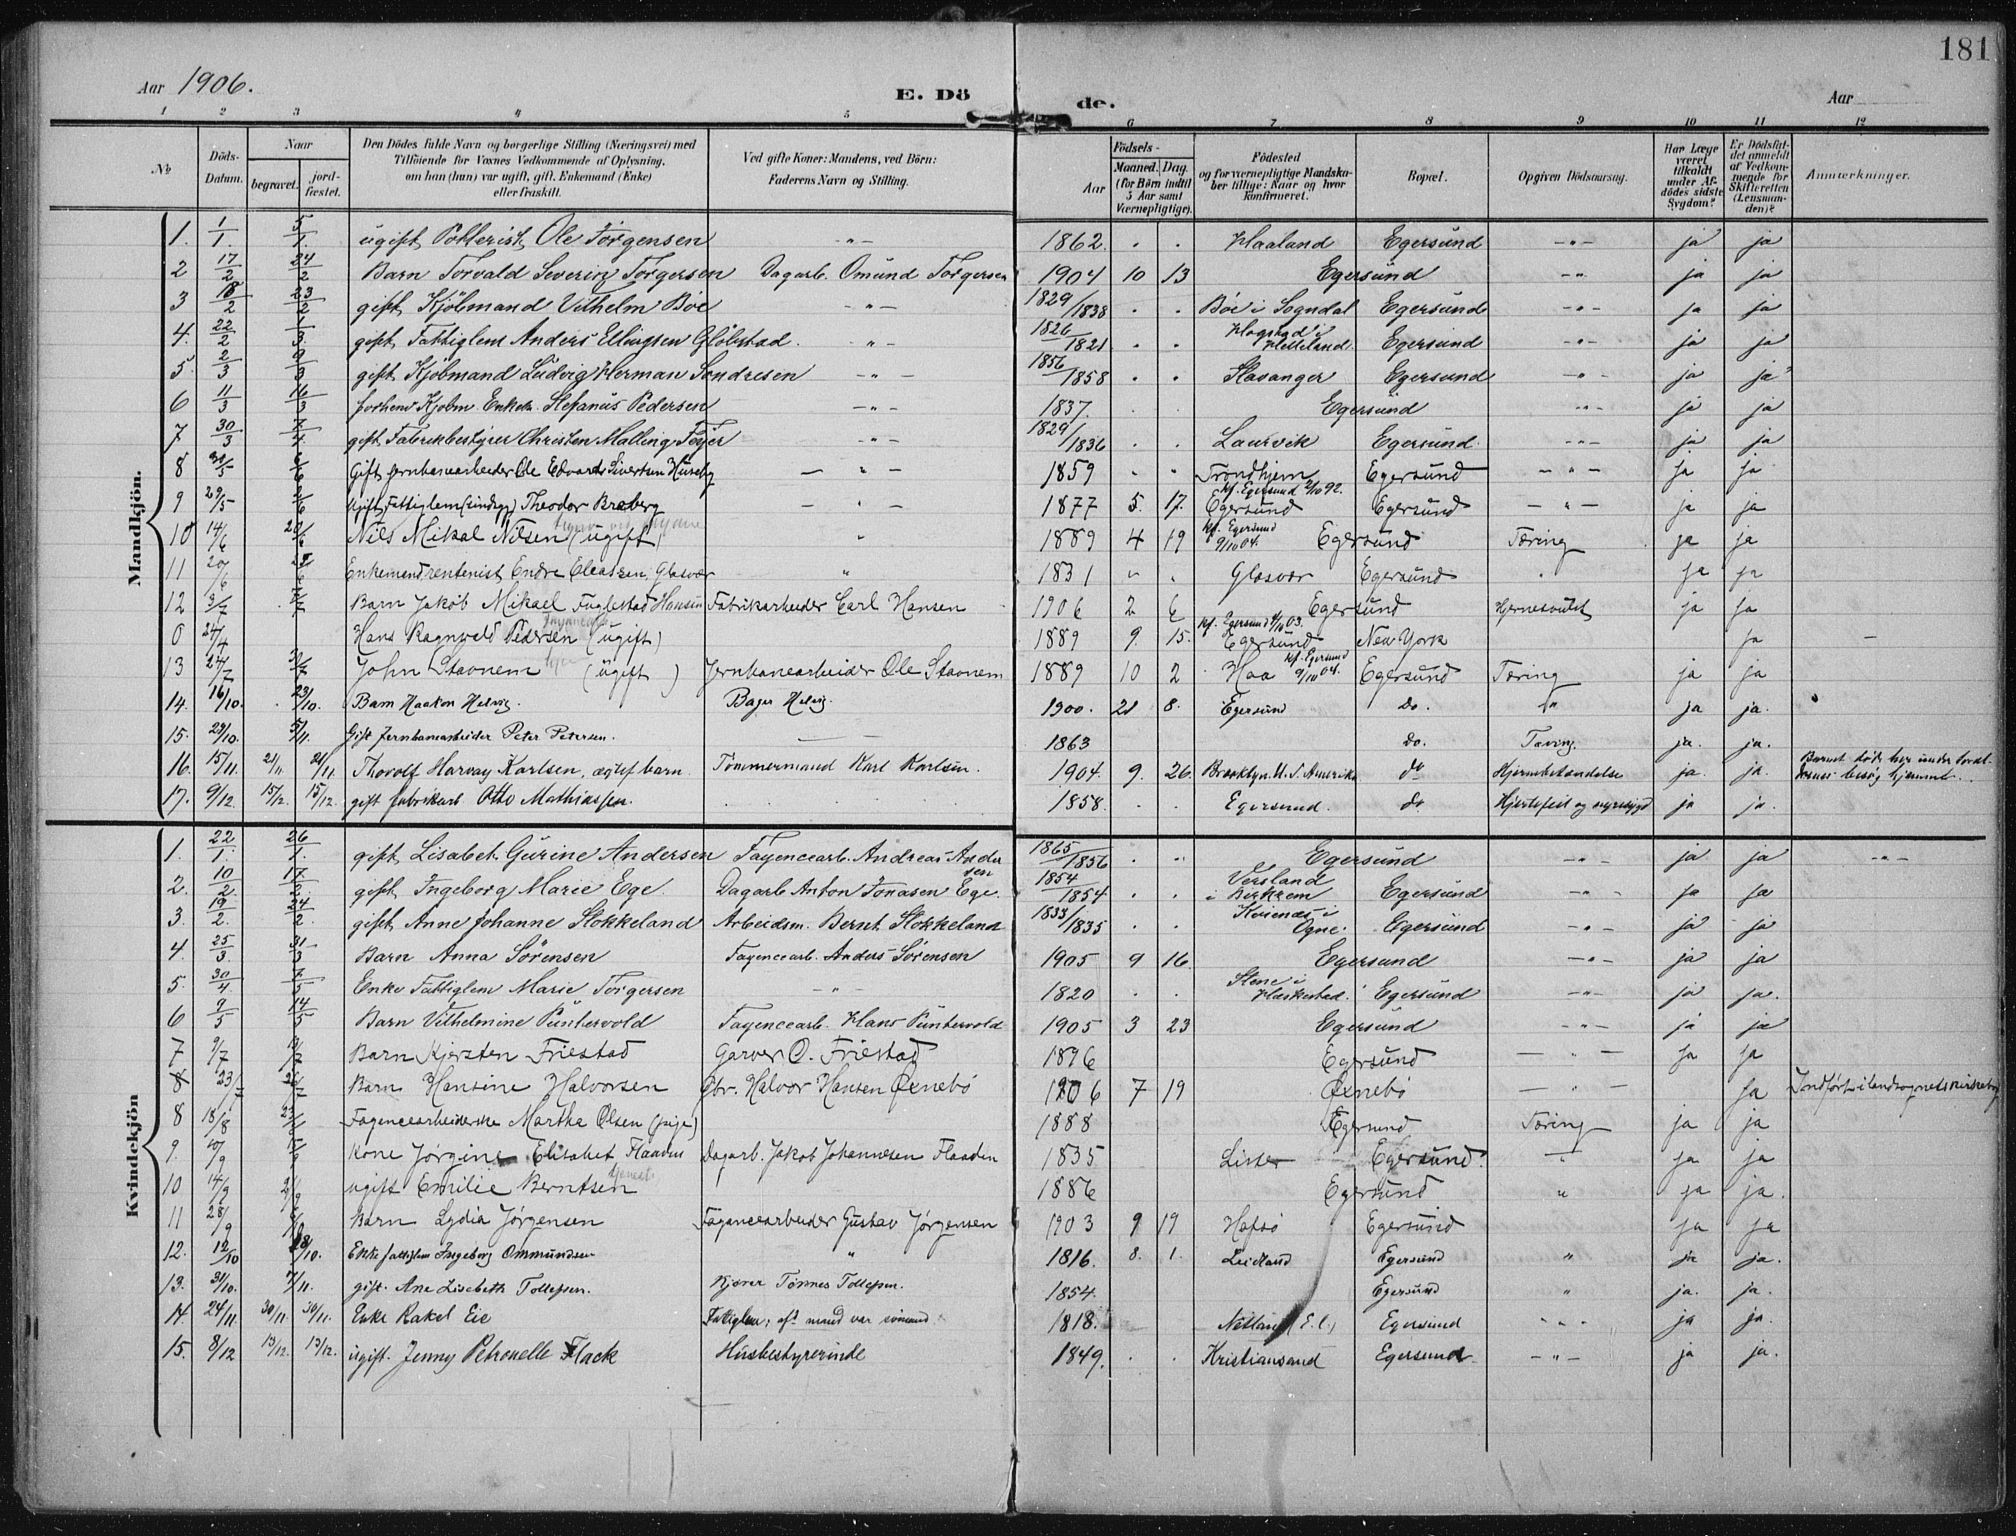 181
Aar 1906.
E. Dö
de.
Aar
1 2 3 4 5 6 7 8 9 10 11 12
№
Döds-Datum.
Naar
begravet.
jord-fæstet.
Den Dödes fulde Navn og borgerlige Stilling (Næringsvei) med
Tilföiende for Voxnes Vedkommende af Oplysning.
om han (hun) var ugift, gift, Enkemand (Enke)
eller fraskilt.
Ved gifte Koner: Mandens, ved Börn:
Faderens Navn og Stilling.
Födsels-
Aar
Maaned. Dag.
(for Börn indtil
5 Aar samt
Værnepligtige).
Födested
og for værnepligtige Mandska-
ber tillige: Naar og hvor
konfirmeret.
Bopæl.
Opgiven Dödsaarsag.
Har Læge
været
tilkaldt
under Af-
dödes sidste
Sygdom?
Er Dödsfal-
det anmeldt
af Vedkom-
mende for
Skifteretten
(Lensman-
den)?
Anmærkninger.
Mandkjön.
1. 1/1. 5/1. ugift Potterist Ole Torgensen -"- 1862. Haaland Egersund -"- ja ja
2 17/2 24/2 Barn Torvald Severin Torgersen Dagarb. Omund Torgersen 1904 10 13 Egersund -"- ja ja
3 18/2 23/2 gift Kjöbmand Vilhelm Böe -"- 1829/1838 Böe i Sogndal Egersund -"- ja ja
4. 22/2 1/3 gift Fattiglem Anders Ellingsen Glöbstad. -"- 1826/1821 Hogstad i Helleland. Egersund -"- ja ja
5. 2/3 9/3 gift Kjöbmand Ludvig Herman Sondresen -"- 1856/1858 Stavanger Egersund -"- ja ja
6 11/3 16/3 forhenv. Kjöbm. Enkem. Stefanus Pedersen -"- 1837. Egersund -"- ja ja
7 30/3 7/4 gift Fabrikbestyrer Christen Malling Feyer -"- 1829/1836 Laurvik Egersund. -"- ja ja
8 30/5 6/6 Gift Jernbanearbeider Ole Edvard Sivertsen Huseby - " - 1859 Trondhjem Egersund - " - ja ja
9 29/5 /6 Ugift Fattiglem (sindsyg) Theodor Breberg - " - 1877 5. 17. kf. Egersund 2/10 92. Egersund Egersund - " - ja ja
10 14/6 20/6 Nils Mikal Nilsen (ugift) " 1889 4 19 kf. Egersund 9/10 04. Egersund Tæring ja ja
11 20/6 Enkemand rentenist Endre Oleassen, Glasvær " 1831 Glasvær Egersund ja ja
12 3/7 7/7 Barn Jakob Mikael Fuglestad Hansen Fabrikarbeider Carl Hansen 1906 2 6 Egersund Hjernesvulst ja ja
0 24/4 Hans Ragnvald Pedersen (ugift) 1889 9. 15. kf. Egersund 4/10 03. Egersund New York ja -
13 27/7 31/7 John Stavnem (ugift) Jernbanearbeider Ole Stavnem 1889 10 2 Haa kf. Egersund 9/10 04. Egersund Tæring ja ja
14. 16/10. 23/10. Barn Haakon Helvig. Bager Helvig. 1900. 21 8. Egersund do. " ja ja.
15. 29/10. 5/11. Gift Jernbanearbeider Peter Petersen. 1863 do. Tæring. ja. ja.
16. 15/11. 21/11 21/11. Thovolf Harvay Karlsen, ægtef barn. Tömmermand Karl Karlsen. 1904. 9. 26. Brooklyn. U. S. Amerika do Hjernebetændelse ja. ja. Barnet döde her under Foræl-
drenes besög hjemme.
17. 9/12. 15/12. 15/12. gift fabrikarb Otto Mathiassen. 1858. Egersund. do Hjertefeil og nyresygd ja ja.
Kvindekjön
1. 22/1. 26/1. gift Lisabet. Gurine Andersen Fayencearb. Andreas Andersen 1865/1856 Egersund -"- ja ja -"-
2. 10/2. 17/2. gift Ingeborg Marie Ege. Dagarb. Anton Jonasen Ege. 1854/1854 Versland i Bjerkrem Egersund -"- ja ja
3. 19/2. 24/2 gift Anne Johanne Stokkeland Arbeidsm. Bernt Stokkeland 1833/1835 Kvienæs i Ogne. Egersund -"- ja ja
4. 25/3. 31/3 Barn Anna Sörensen Fayencearb. Anders Sörensen 1905 9 16. Egersund -"- ja ja
5. 30/4. 7/5 Enke Fattiglem Marie Torgersen -"- 1820 Stene i Heskestad. Egersund -"- ja ja.
6 9/5 14/5 Barn Vilhelmine Puntervold Fayencearb. Hans Puntervold 1905 3 23 Egersund -"- ja ja
7 9/7 /7 Barn Kjersten Friestad Garver O. Friestad 1896 Egersund - " - ja ja
8 23/7 26/7 Barn Hansine Halvorsen Gbr. Halvor Hansen Öxnebö 1906 7 19 Öxnebö - " - ja Indfört i landsognets kirkebog
8 18/8 23/8 Fagencearbeiderske Martha Olsen (pige) 1888 Egersund Tæring ja ja
9. 10/9 Kone Jörgine Elisabet Flaaden Dagarb. Jakob Johannesen Flaaden 1835 Lister Egersund. " ja ja
10 14/9 21/9 ugift Emilie Berntsen 1886 Egersund " ja ja.
11 28/9 /10 Barn Lydia Jörgensen Fagencearbeider Gustav Jörgensen 1903 9 19 Hafsö Egersund ja ja
12. 12/10 18/10. Enke fattiglem Ingeborg Ommundsen " 1816. 8. 1. Leidland Egersund " ja ja.
13. 31/10. 7/11. gift. Ane Lisebeth Tollefsen. Kjører Tønnes Tollefsen. 1854. Egersund " ja. ja.
14. 24/11. 30/11. 30/11. Enke Rakel Eie Fattiglem; afd. mand var sömand 1818. Netland (E. l.) Egersund -"- ja ja.
15. 8/12 13/12. 13/12. ugift. Jenny Petronelle Flack Husbestyrerinde 1849. Kristiansand Egersund. -"- ja ja.